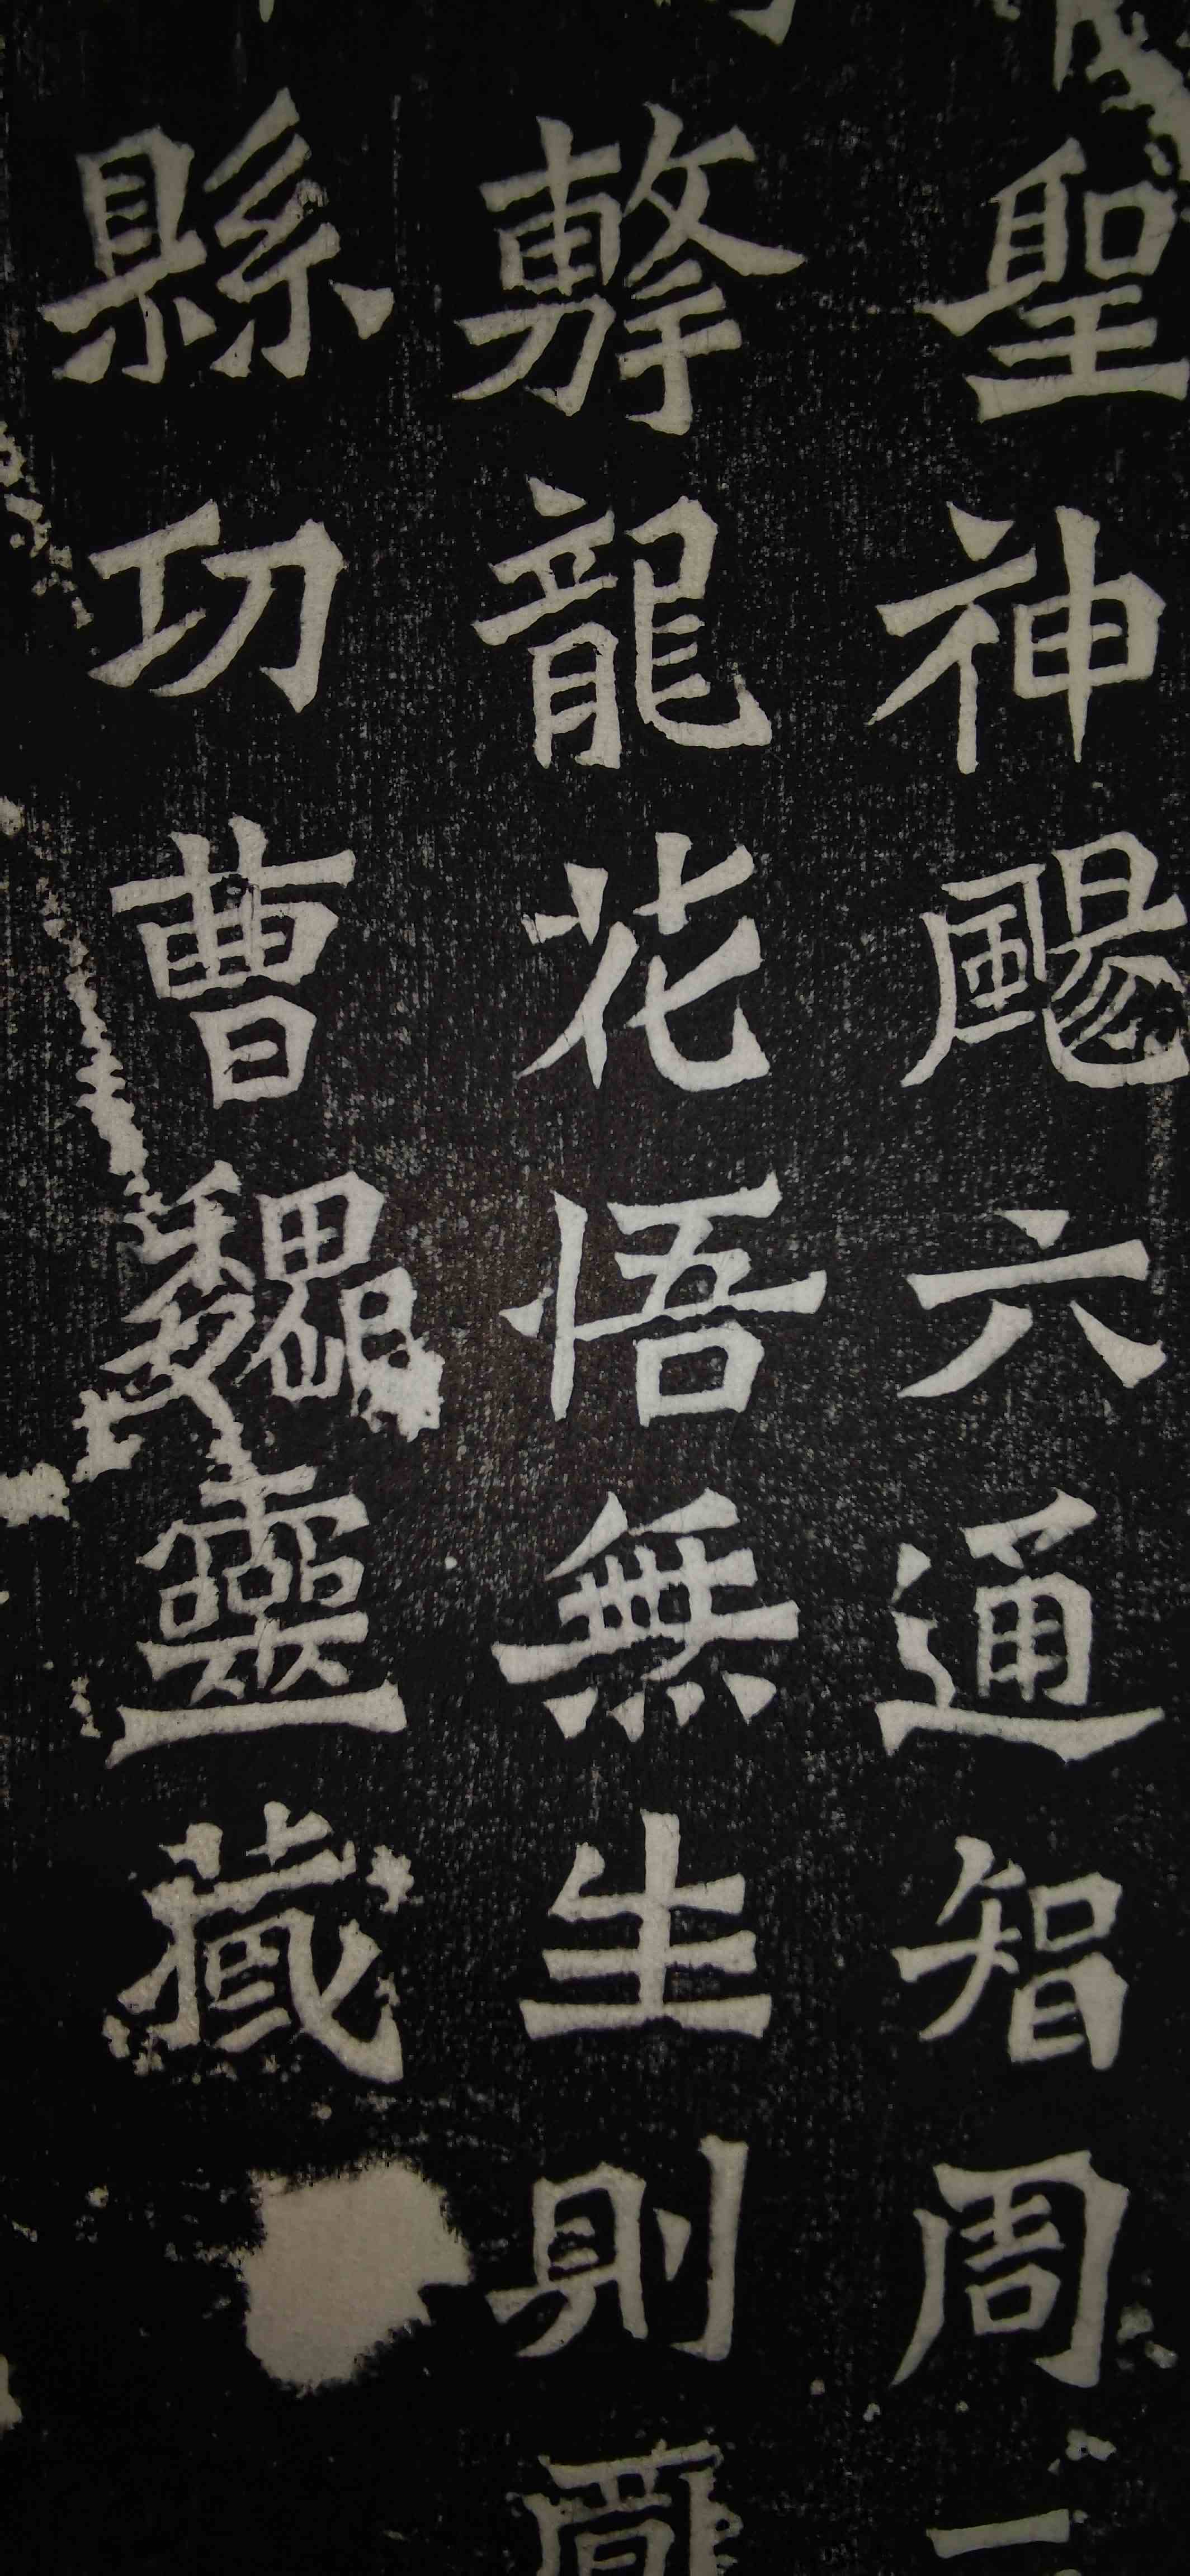 聖神颺六通智周三
擊龍花悟無生則
縣功曹魏靈藏